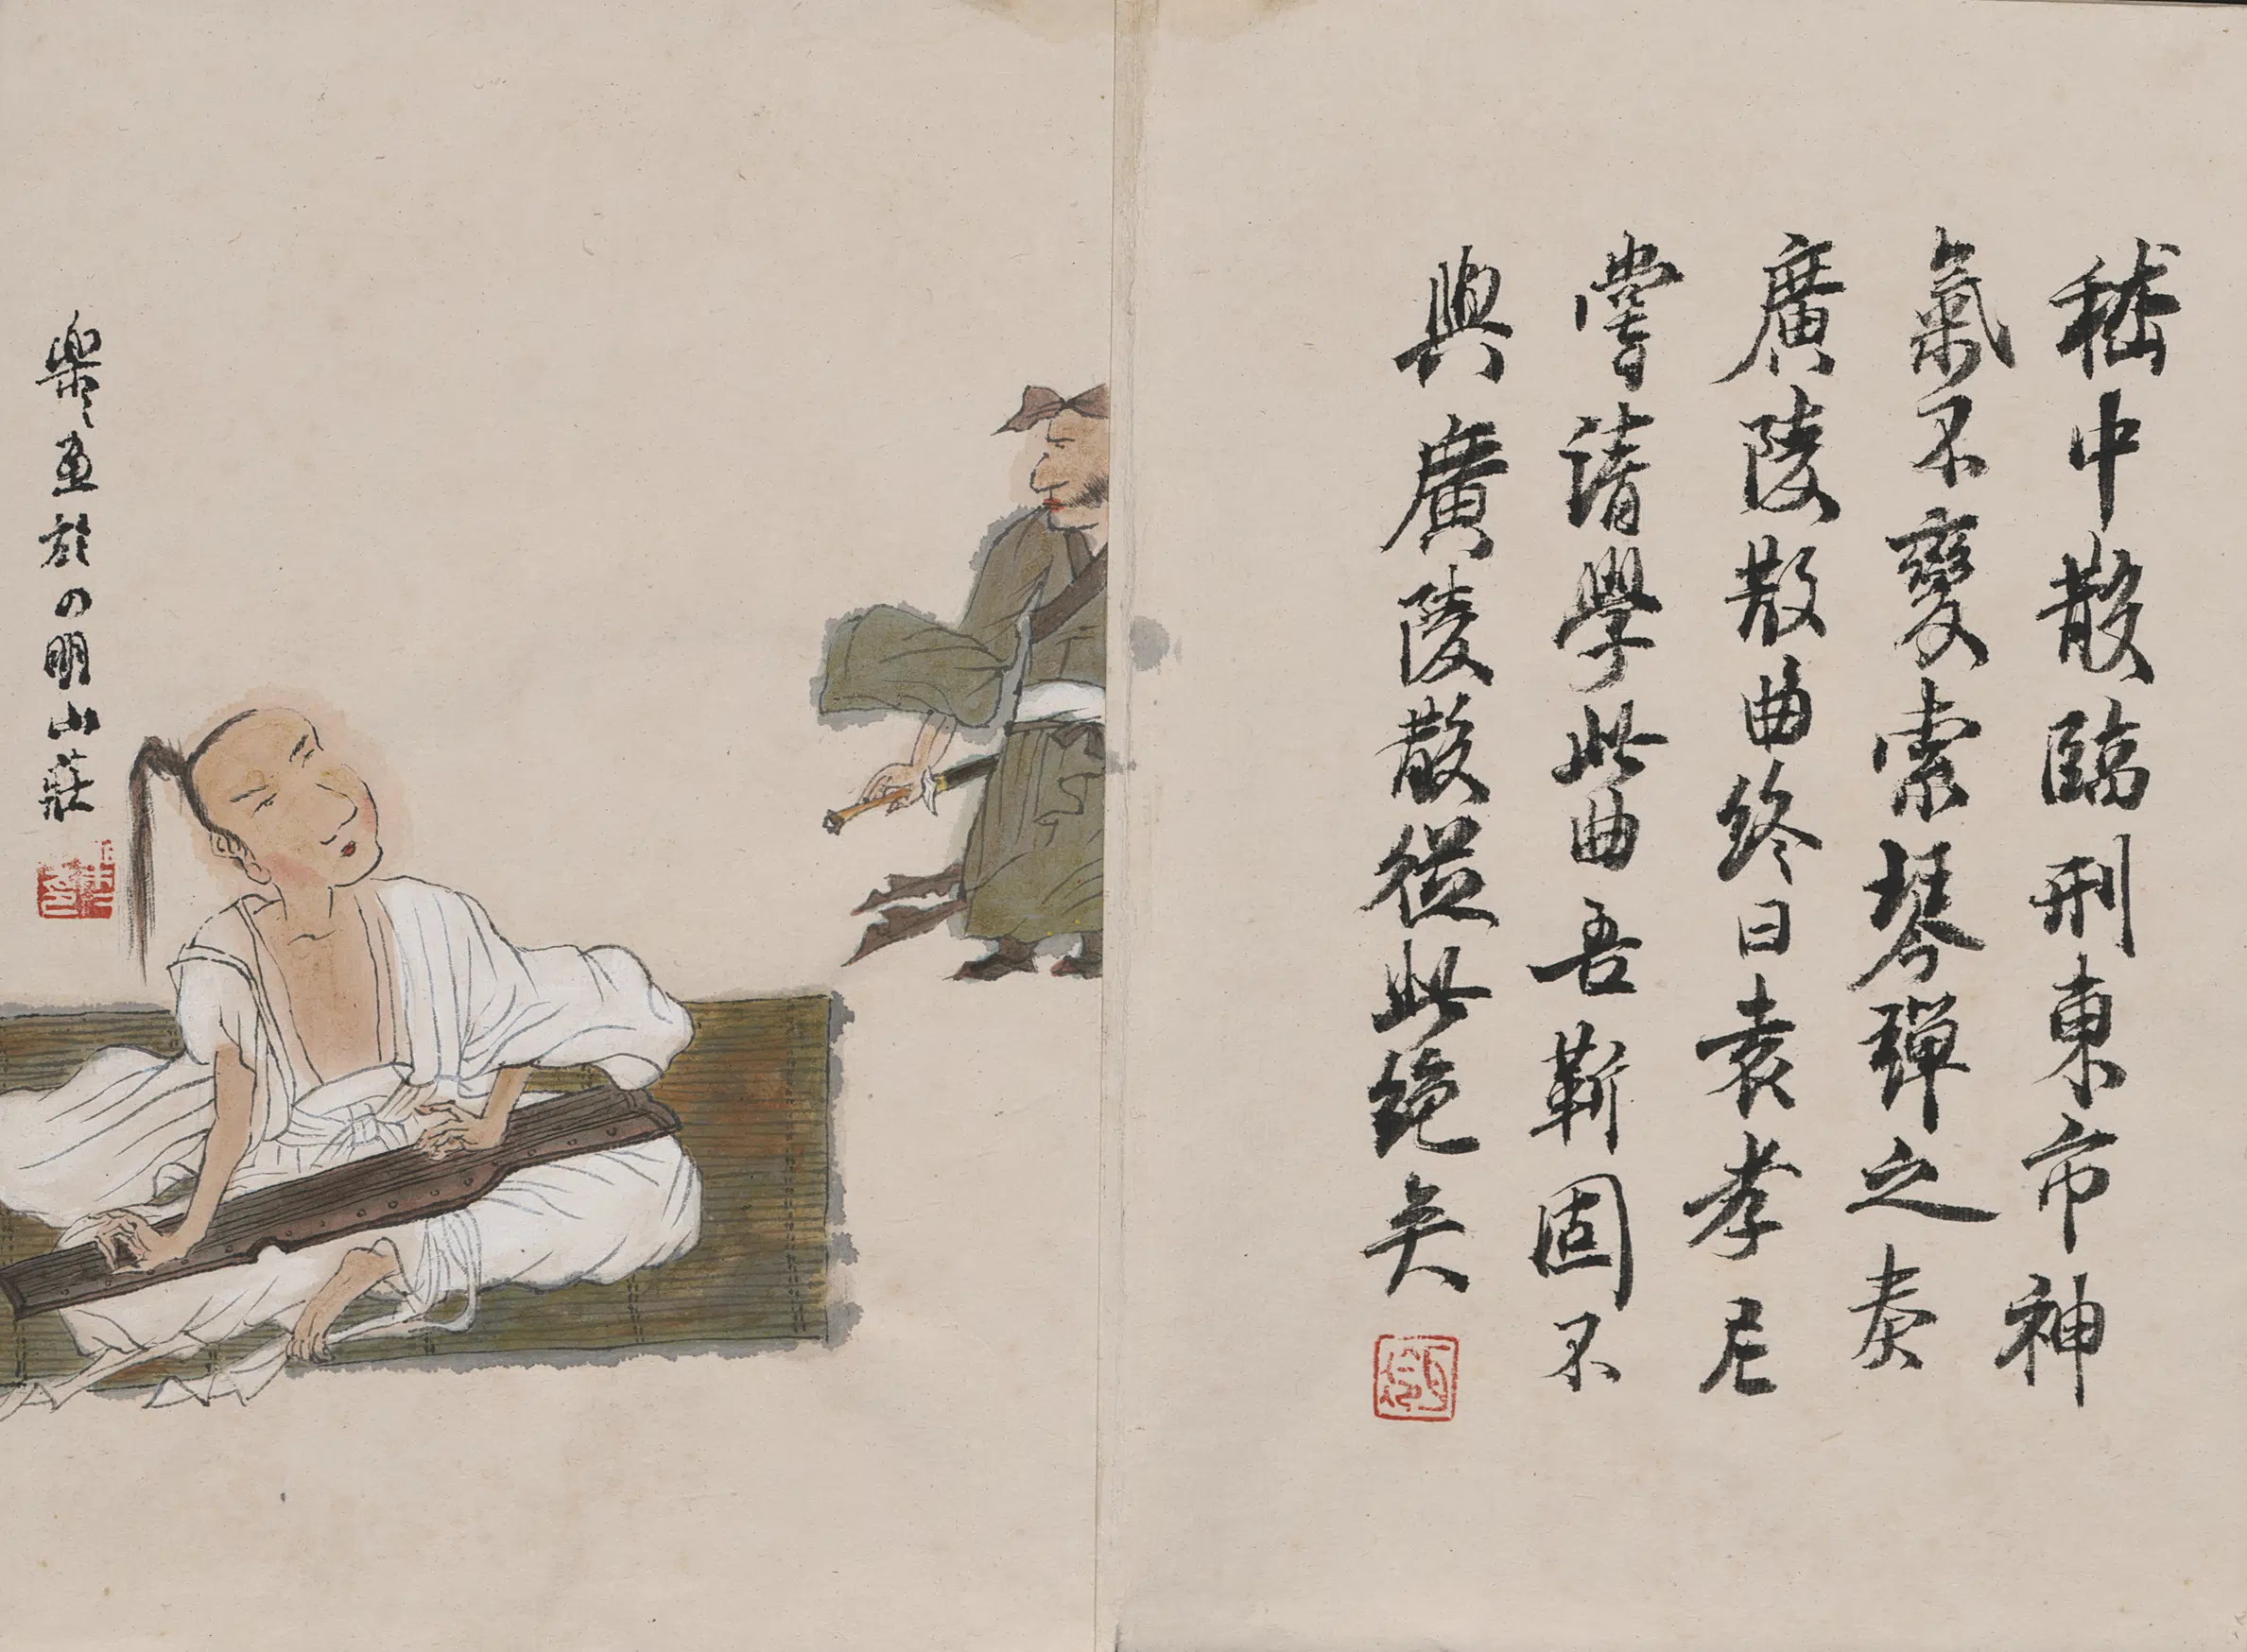 嵇中散臨刑東市神
氣不變索琴彈之奏
廣陵散曲終曰袁孝尼
嘗請學此曲吾靳固不
與廣陵散從此絕矣
樂〻畫於四明山莊